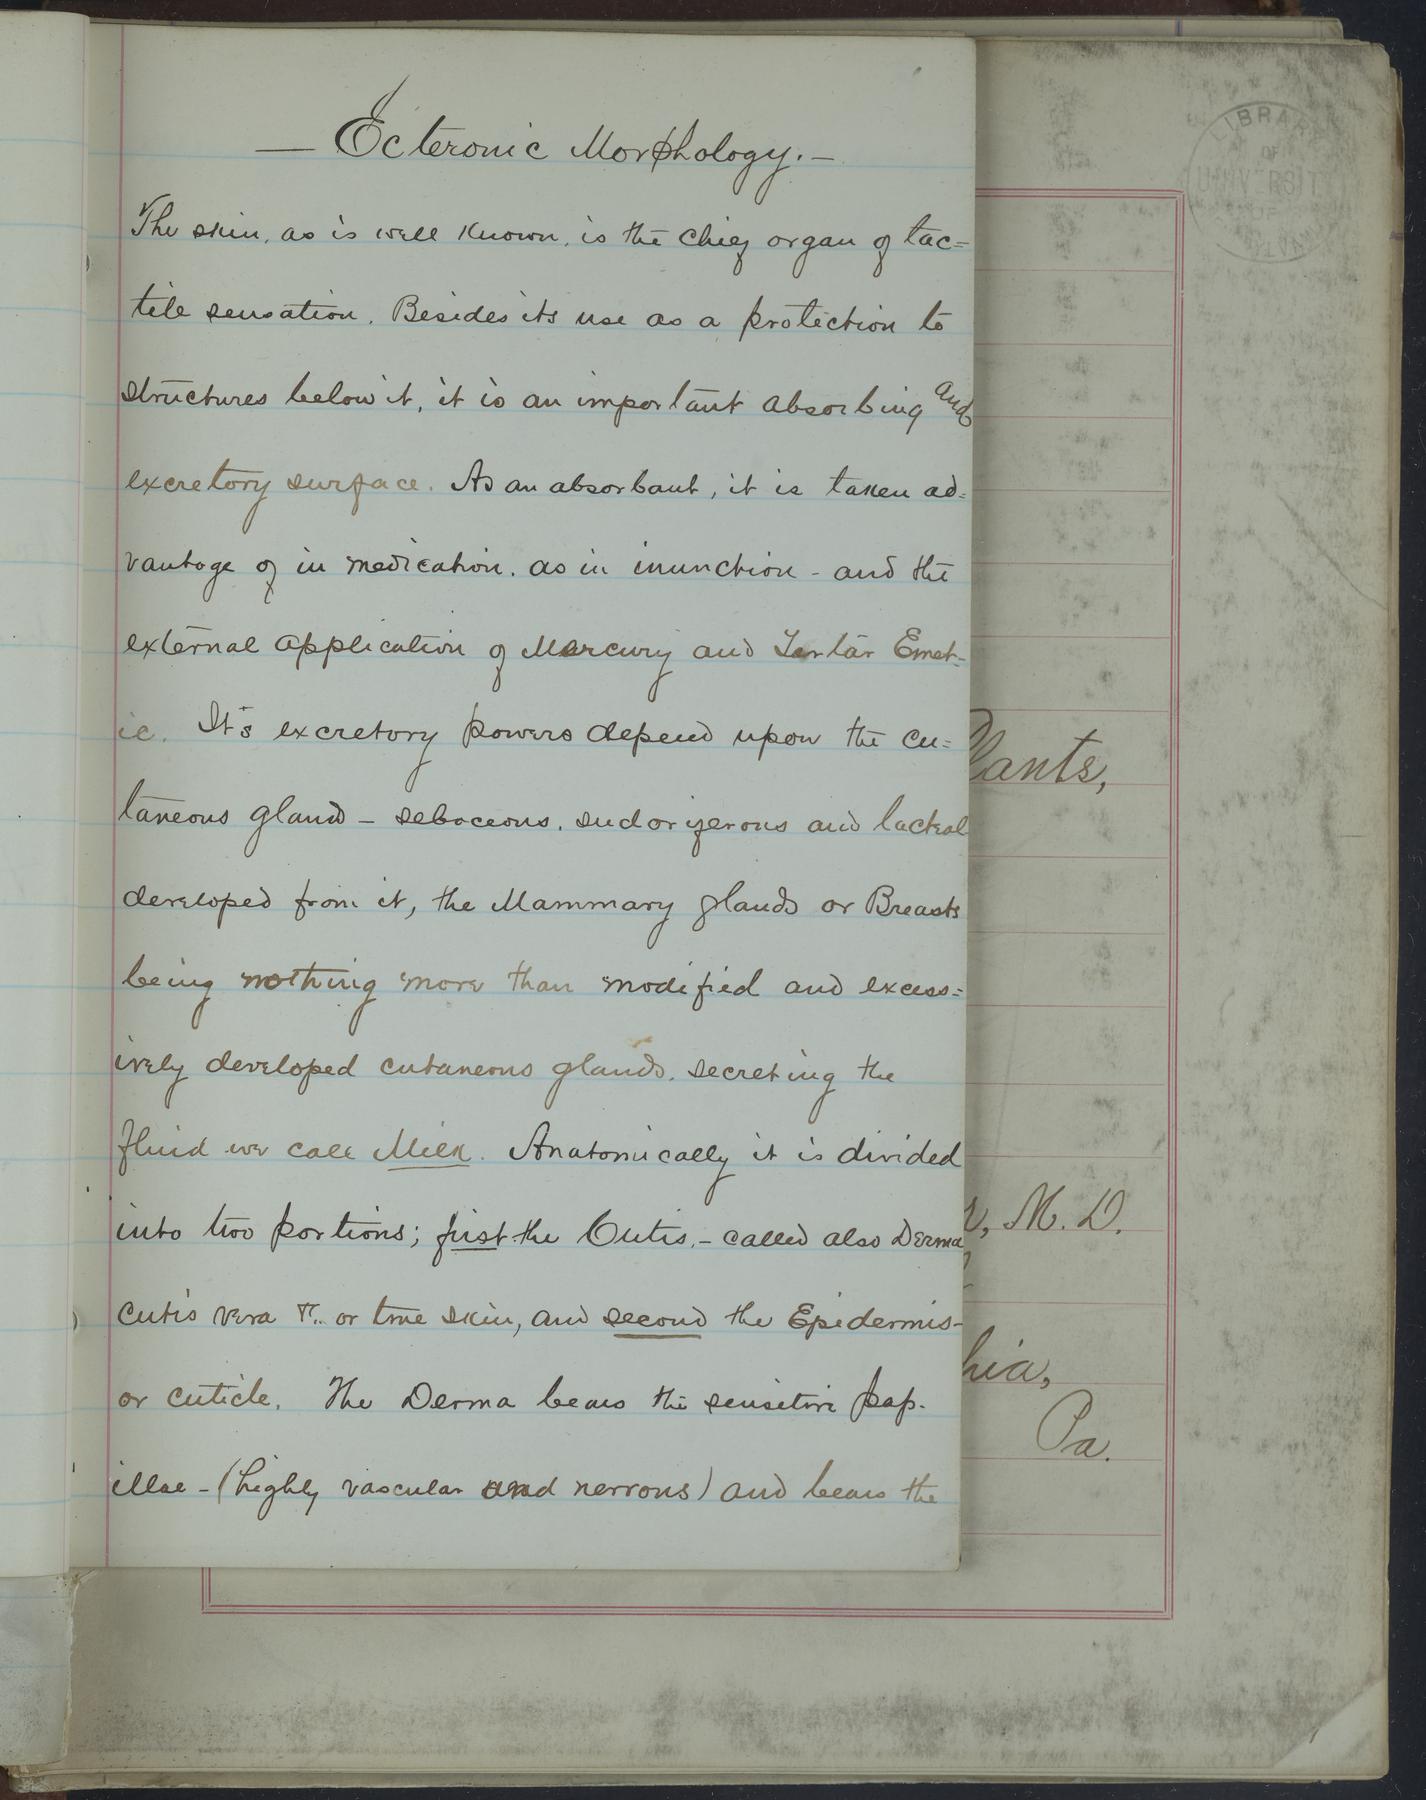 — Ecteronic Morphology. —
The skin, as is well known, is the chief organ of tac=
tile sensation. Besides its use as a protection to
structures below it, it is an important absorbing and
excretory surface. As an absorbant, it is taken ad=
vantage of in medication, as in inunction - and the
external application of Mercury and Tartar Emet-
ic. It's excretory powers depend upon the cu=
taneous gland - sebaceous, sudoriferous and lacteal
developed from it, the Mammary glands or Breasts
being nothing more than modified and excess=
ively developed cutaneous glands, secreting the
fluid we call Milk. Anatomically it is divided
into two portions; first the Cutis, - called also Derma
cutis vera or true skin, and second the Epidermis-
or cuticle. The Derma bears the sensitive pap-
illae - (highly vascular and nervous) and bears the
Plants,
r, M. D.
hia,
Pa.
LIBRARY
OF